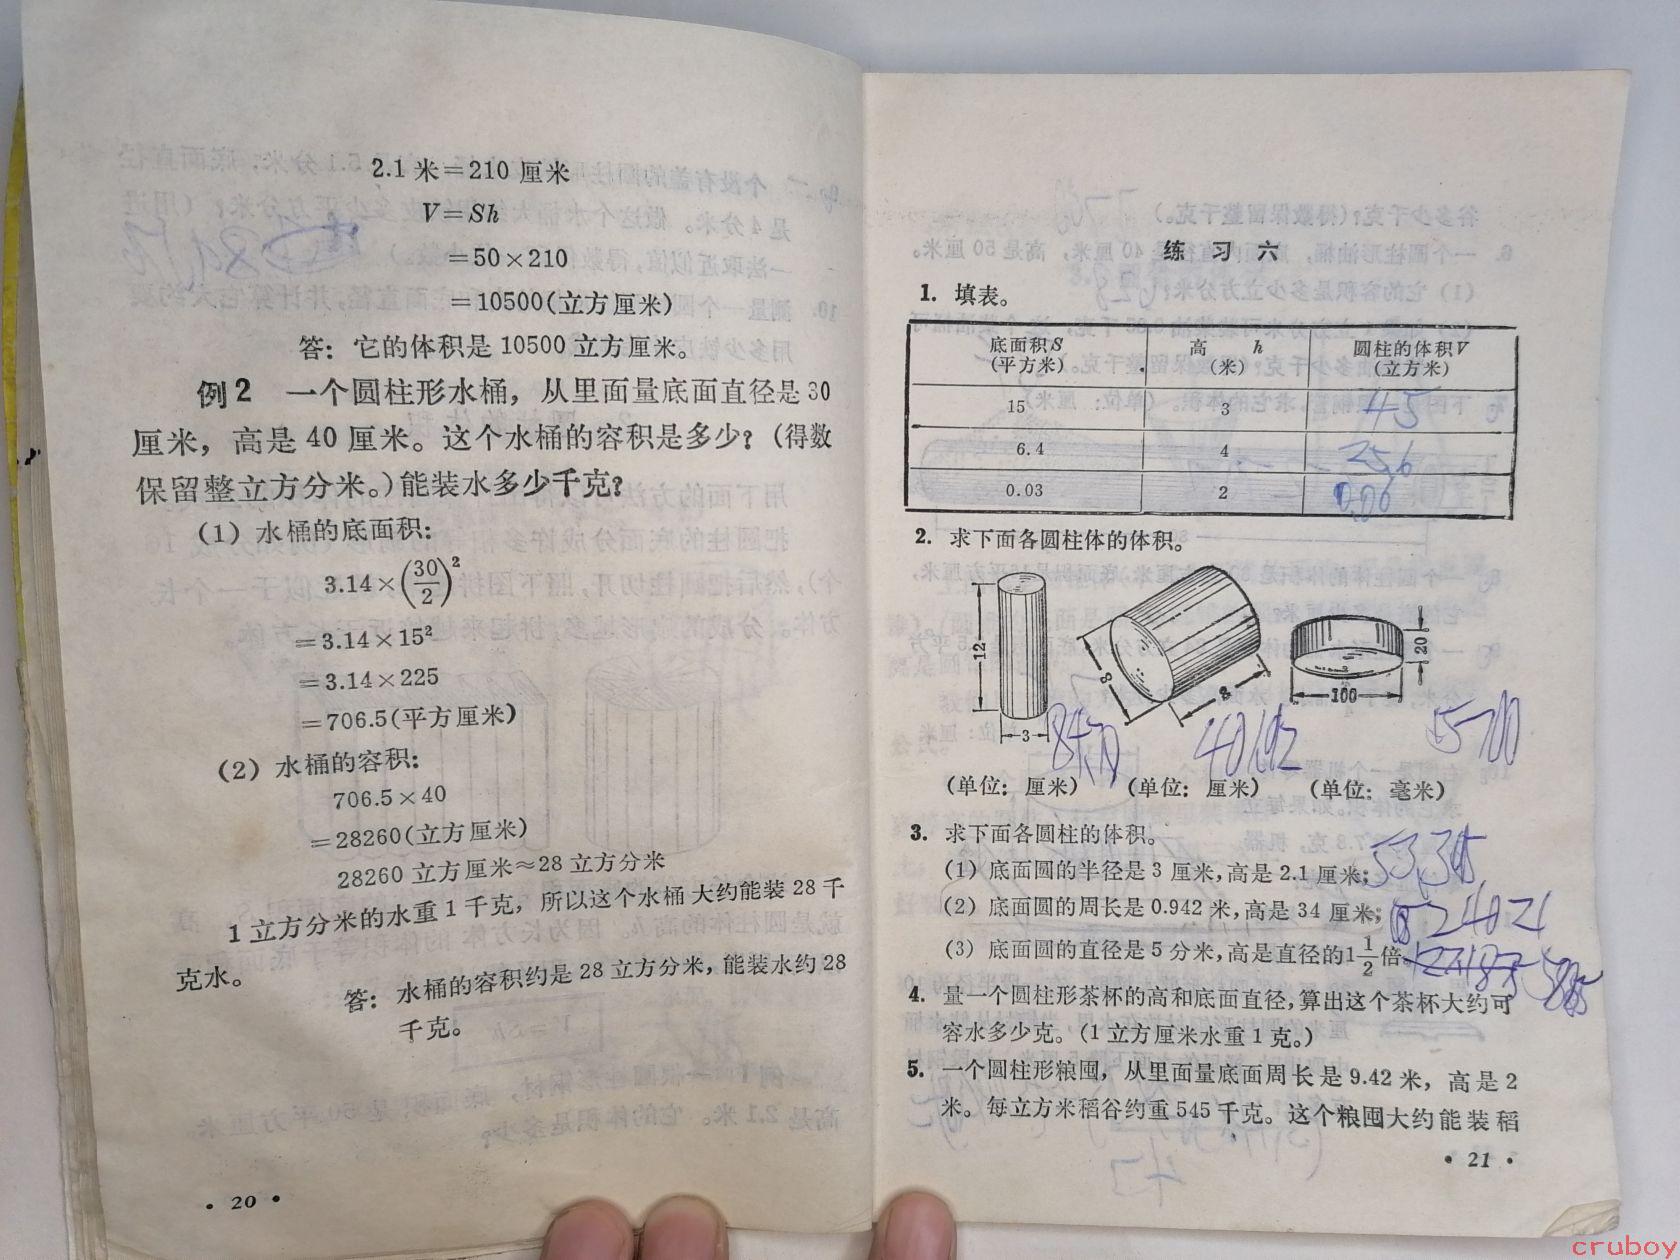 2.1 米＝210 厘米
V＝Sh
＝50×210
＝10500(立方厘米)
答：它的体积是 10500 立方厘米。
例2 一个圆柱形水桶，从里面量底面直径是 30
厘米，高是 40 厘米。这个水桶的容积是多少？(得数
保留整立方分米。)能装水多少千克？
(1) 水桶的底面积：
3.14×(30/2)²
＝3.14×15²
＝3.14×225
＝706.5(平方厘米)
(2) 水桶的容积：
706.5×40
＝28260(立方厘米)
28260 立方厘米≈28 立方分米
1 立方分米的水重 1 千克，所以这个水桶大约能装 28 千
克水。
答：水桶的容积约是 28 立方分米，能装水约 28
千克。
• 20 •
练 习 六
1. 填表。
底面积S (平方米) 高 h (米) 圆柱的体积V (立方米)
15 3 45
6.4 4 25.6
0.03 2 0.06
2. 求下面各圆柱体的体积。
12 3
8 8
20 100
(单位：厘米) (单位：厘米) (单位：毫米)
3. 求下面各圆柱的体积。
(1) 底面圆的半径是 3 厘米,高是 2.1 厘米;
(2) 底面圆的周长是 0.942 米,高是 34 厘米;
(3) 底面圆的直径是 5 分米,高是直径的1 1/2 倍。
4. 量一个圆柱形茶杯的高和底面直径,算出这个茶杯大约可
容水多少克。(1 立方厘米水重 1 克。)
5. 一个圆柱形粮囤，从里面量底面周长是 9.42 米，高是 2
米。每立方米稻谷约重 545 千克。这个粮囤大约能装稻
• 21 •
cruboy